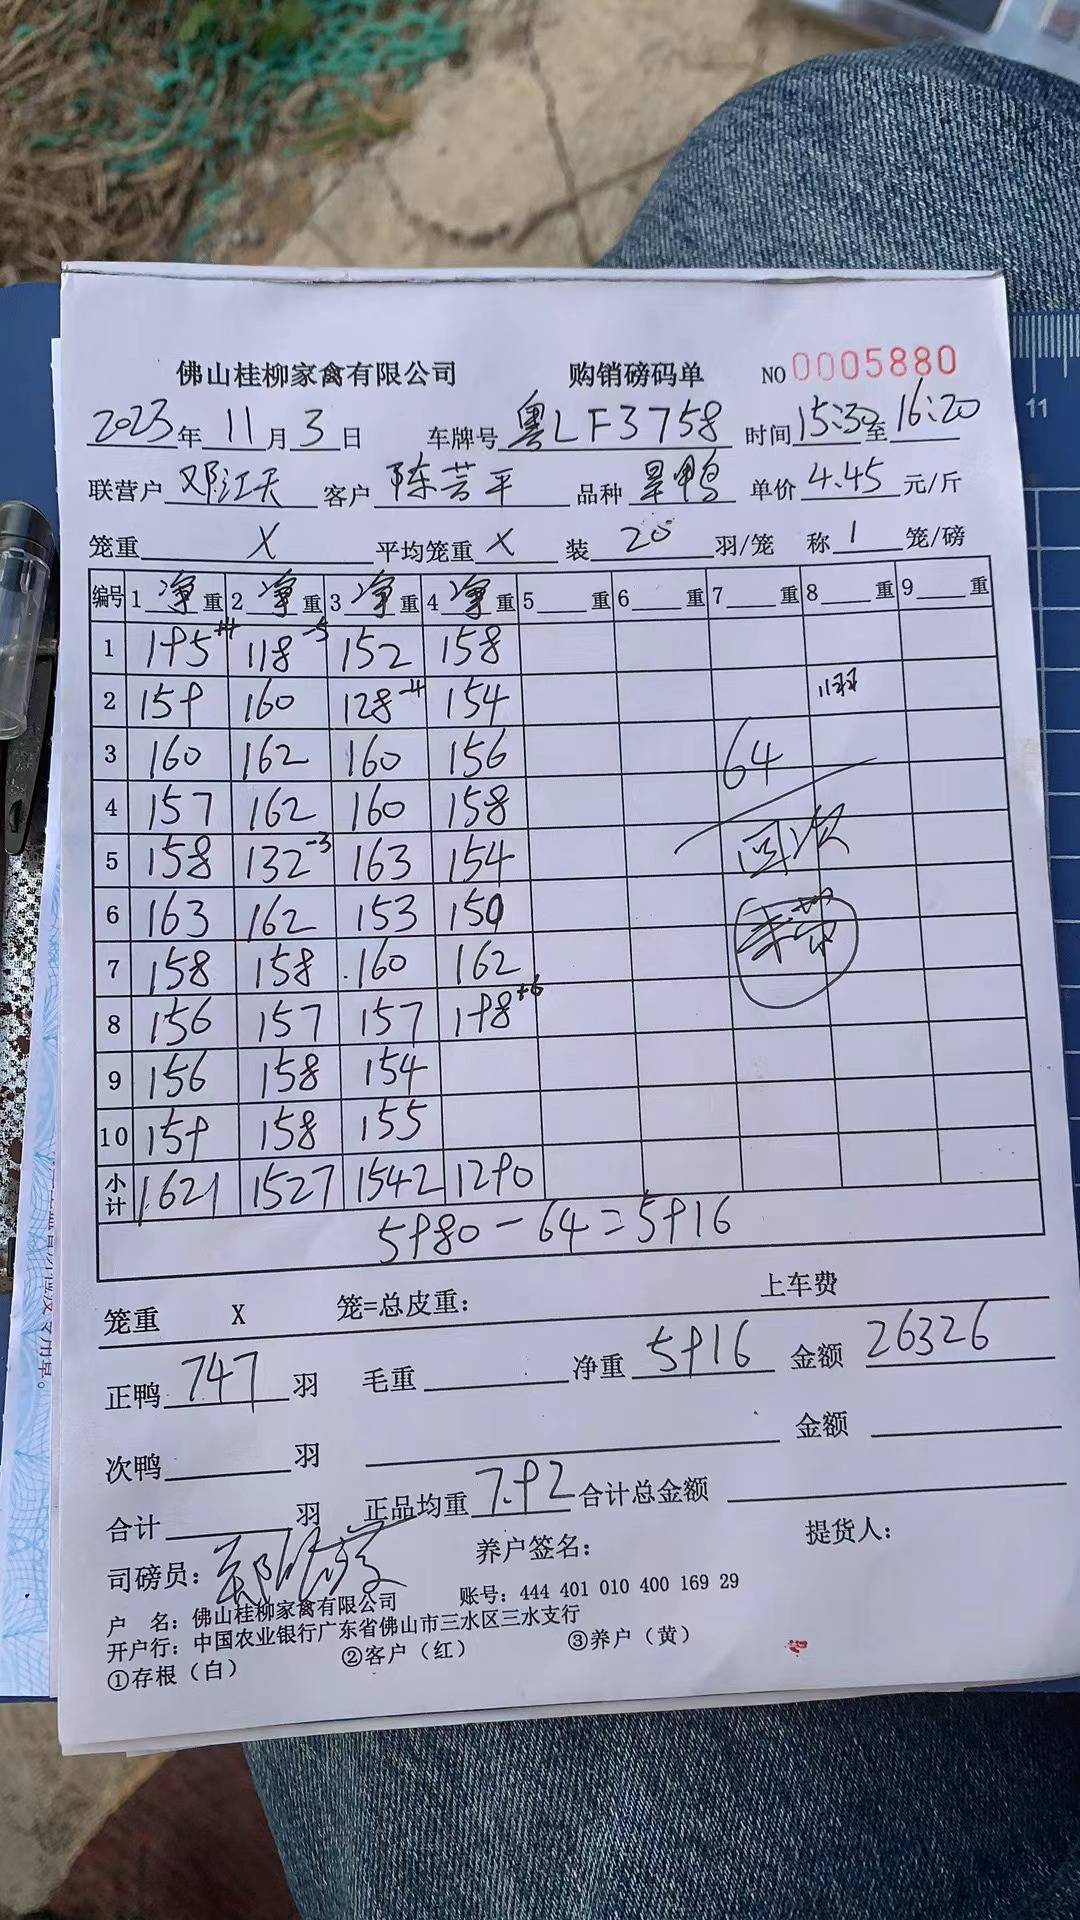 佛山桂柳家禽有限公司 购销磅码单 NO 0005880
2023年 11月 3日 车牌号 粤LF3758 时间 15:30至 16:20
联营户 邓江天 客户 陈芸平 品种 旱鸭 单价 4.45 元/斤
笼重 X 平均笼重 X 装 20 羽/笼 称 1 笼/磅
编号 1 净 重 2 净 重 3 净 重 4 净 重 5 重 6 重 7 重 8 重 9 重
1 195+4 118-5 152 158
2 159 160 128-4 154
3 160 162 160 156 64
4 157 162 160 158
5 158 132-3 163 154
6 163 162 153 150
7 158 158 160 162
8 156 157 157 198+6
9 156 158 154
10 159 158 155
小计 1621 1527 1542 1290
5980-64=5916
笼重 X 笼=总皮重: 上车费
正鸭 747 羽 毛重 净重 5916 金额 26326
次鸭 羽 金额
合计 羽 正品均重 7.92 合计总金额
司磅员: 养户签名: 提货人:
户 名: 佛山桂柳家禽有限公司 账号: 444 401 010 400 169 29
开户行: 中国农业银行广东省佛山市三水区三水支行
①存根（白） ②客户（红） ③养户（黄）
11